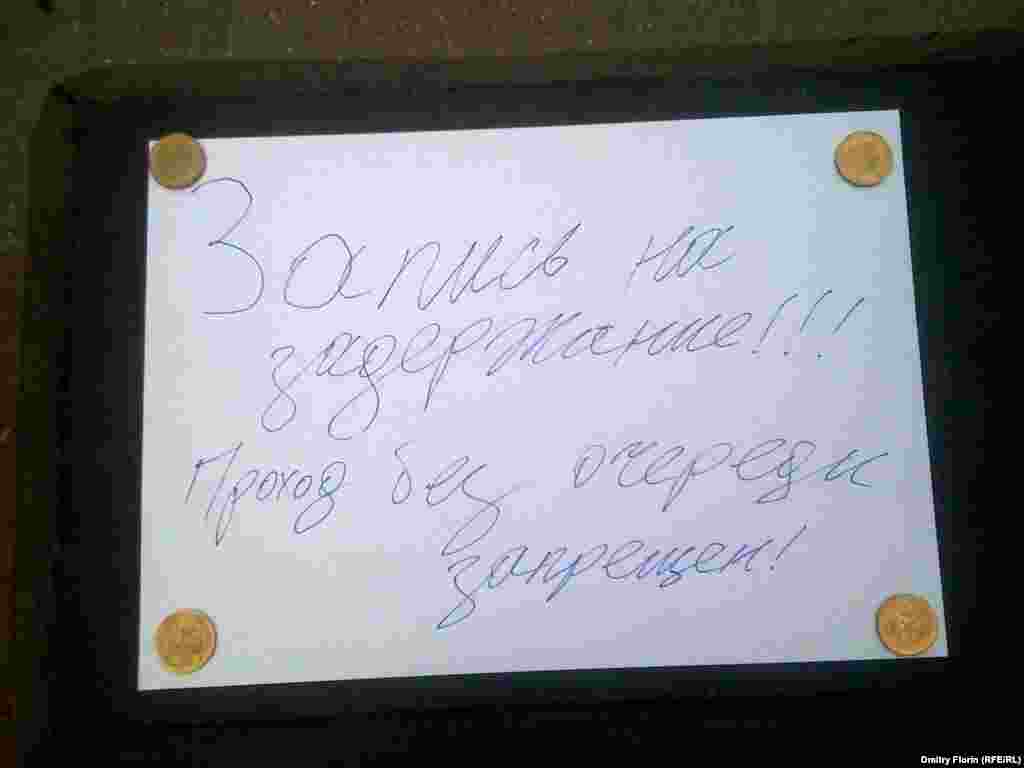 Запись на
задержание!!!
Проход без очереди
запрещен!
Dmitry Florin (RFE/RL)